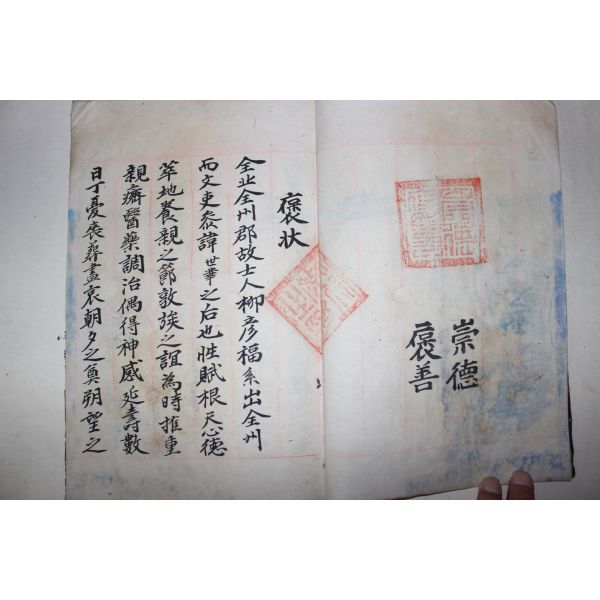 崇德
褒善
褒狀
全北全州郡故士人柳彦福系出全州
而文吏叅諱世華之后也性賦根天心德
萃地養親之節敦族之誼為時推重
親癠醫藥調治偶得神感延壽數
日丁憂喪葬盡哀朝夕之奠朔望之